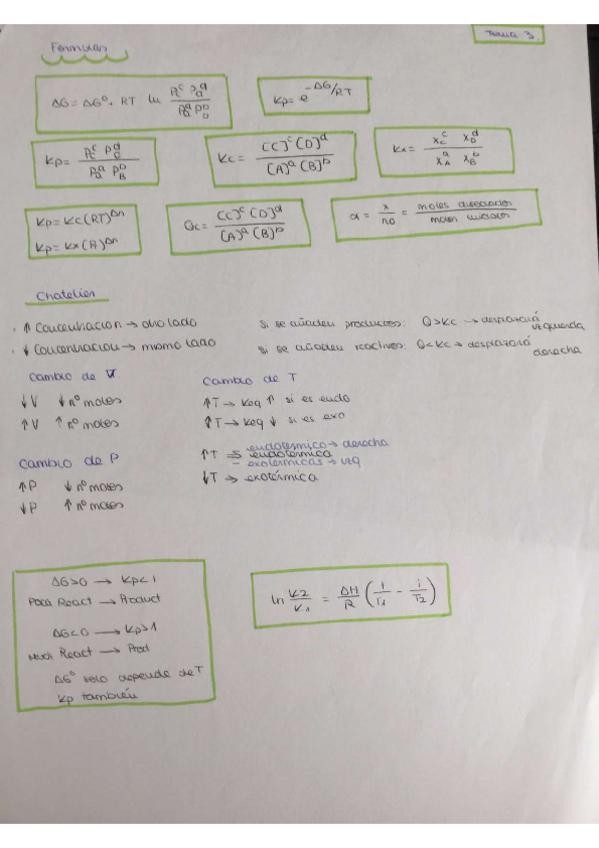 Tema 3.
Formulas
ΔG = ΔG° + RT ln Pc^c Pd^d / Pa^a Pb^b
Kp = e^-ΔG/RT
Kp = Pc^c PD^d / Pa^a PB^b
Kc = [C]^c [D]^d / [A]^a [B]^b
Kx = xC^c xD^d / xA^a xB^b
Kp = Kc (RT)^Δn
Kp = Kx (P)^Δn
Qc = [C]^c [D]^d / [A]^a [B]^b
α = x / no = moles disociados / moles iniciales
Chatelier
· ↑ Concentracion → otro lado
· ↓ Concentracion → mismo lado
Si se añaden productos: Q>Kc → desplazará izquierda
Si se añaden reactivos: Q<Kc → desplazará derecha
Cambio de V
↓V ↓ nº moles
↑V ↑ nº moles
Cambio de P
↑P ↓ nº moles
↓P ↑ nº moles
Cambio de T
↑T → Keq ↑ si es endo
↑T → Keq ↓ si es exo
- endotermico → derecha
↑T → endotermica
- exotermicas → izq
↓T → exotérmica
ΔG>0 → Kp<1
Poca React → Product
ΔG<0 → Kp>1
Much React → Prod
ΔG° solo depende de T
Kp también
ln K2 / K1 = ΔH / R (1 / T1 - 1 / T2)